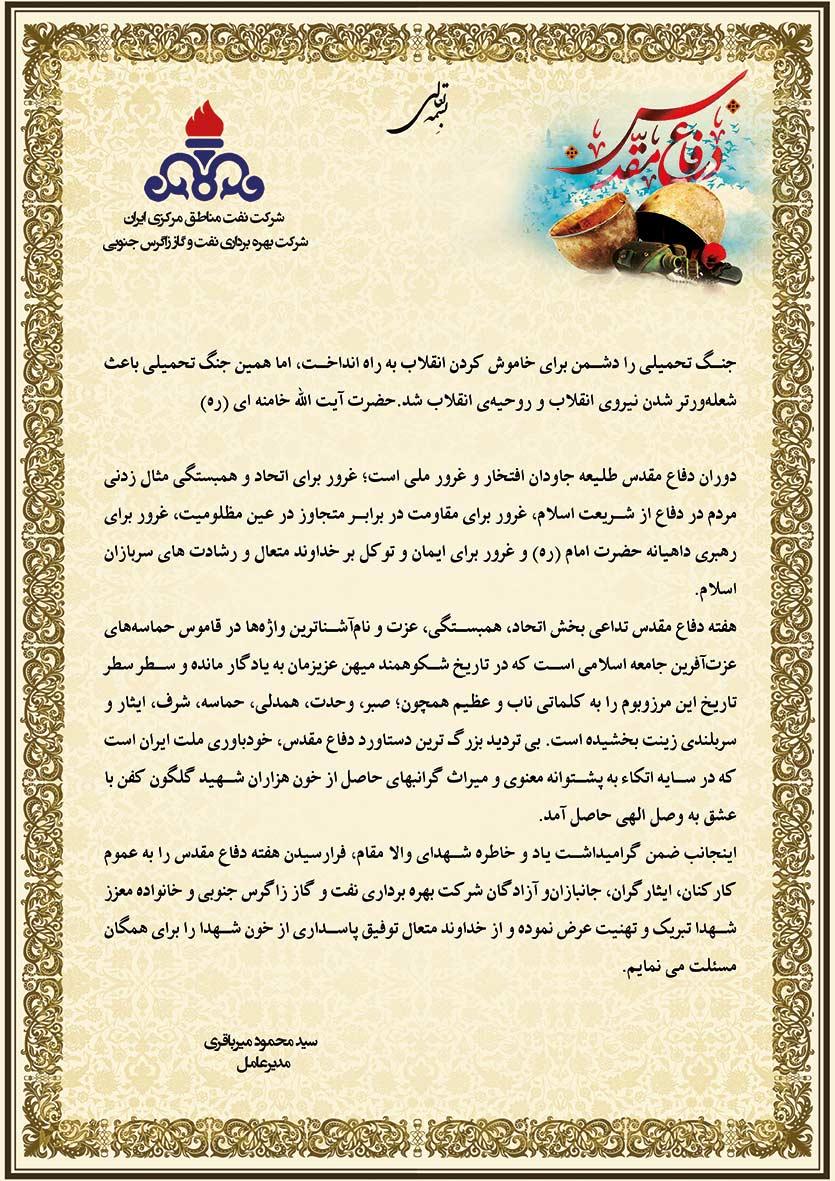 بسمه تعالی
دفاع مقدس
شرکت نفت مناطق مرکزی ایران
شرکت بهره برداری نفت و گاز زاگرس جنوبی
جنگ تحمیلی را دشمن برای خاموش کردن انقلاب به راه انداخت، اما همین جنگ تحمیلی باعث
شعله‌ورتر شدن نیروی انقلاب و روحیه‌ی انقلاب شد.حضرت آیت الله خامنه ای (ره)
دوران دفاع مقدس طلیعه جاودان افتخار و غرور ملی است؛ غرور برای اتحاد و همبستگی مثال زدنی
مردم در دفاع از شریعت اسلام، غرور برای مقاومت در برابر متجاوز در عین مظلومیت، غرور برای
رهبری داهیانه حضرت امام (ره) و غرور برای ایمان و توکل بر خداوند متعال و رشادت های سربازان
اسلام.
هفته دفاع مقدس تداعی بخش اتحاد، همبستگی، عزت و نام‌آشناترین واژه‌ها در قاموس حماسه‌های
عزت‌آفرین جامعه اسلامی است که در تاریخ شکوهمند میهن عزیزمان به یادگار مانده و سطر سطر
تاریخ این مرزوبوم را به کلماتی ناب و عظیم همچون؛ صبر، وحدت، همدلی، حماسه، شرف، ایثار و
سربلندی زینت بخشیده است. بی تردید بزرگ ترین دستاورد دفاع مقدس، خودباوری ملت ایران است
که در سایه اتکاء به پشتوانه معنوی و میراث گرانبهای حاصل از خون هزاران شهید گلگون کفن با
عشق به وصل الهی حاصل آمد.
اینجانب ضمن گرامیداشت یاد و خاطره شهدای والا مقام، فرارسیدن هفته دفاع مقدس را به عموم
کارکنان، ایثارگران، جانبازان‌و آزادگان شرکت بهره برداری نفت و گاز زاگرس جنوبی و خانواده معزز
شهدا تبریک و تهنیت عرض نموده و از خداوند متعال توفیق پاسداری از خون شهدا را برای همگان
مسئلت می نمایم.
سید محمود میرباقری
مدیرعامل